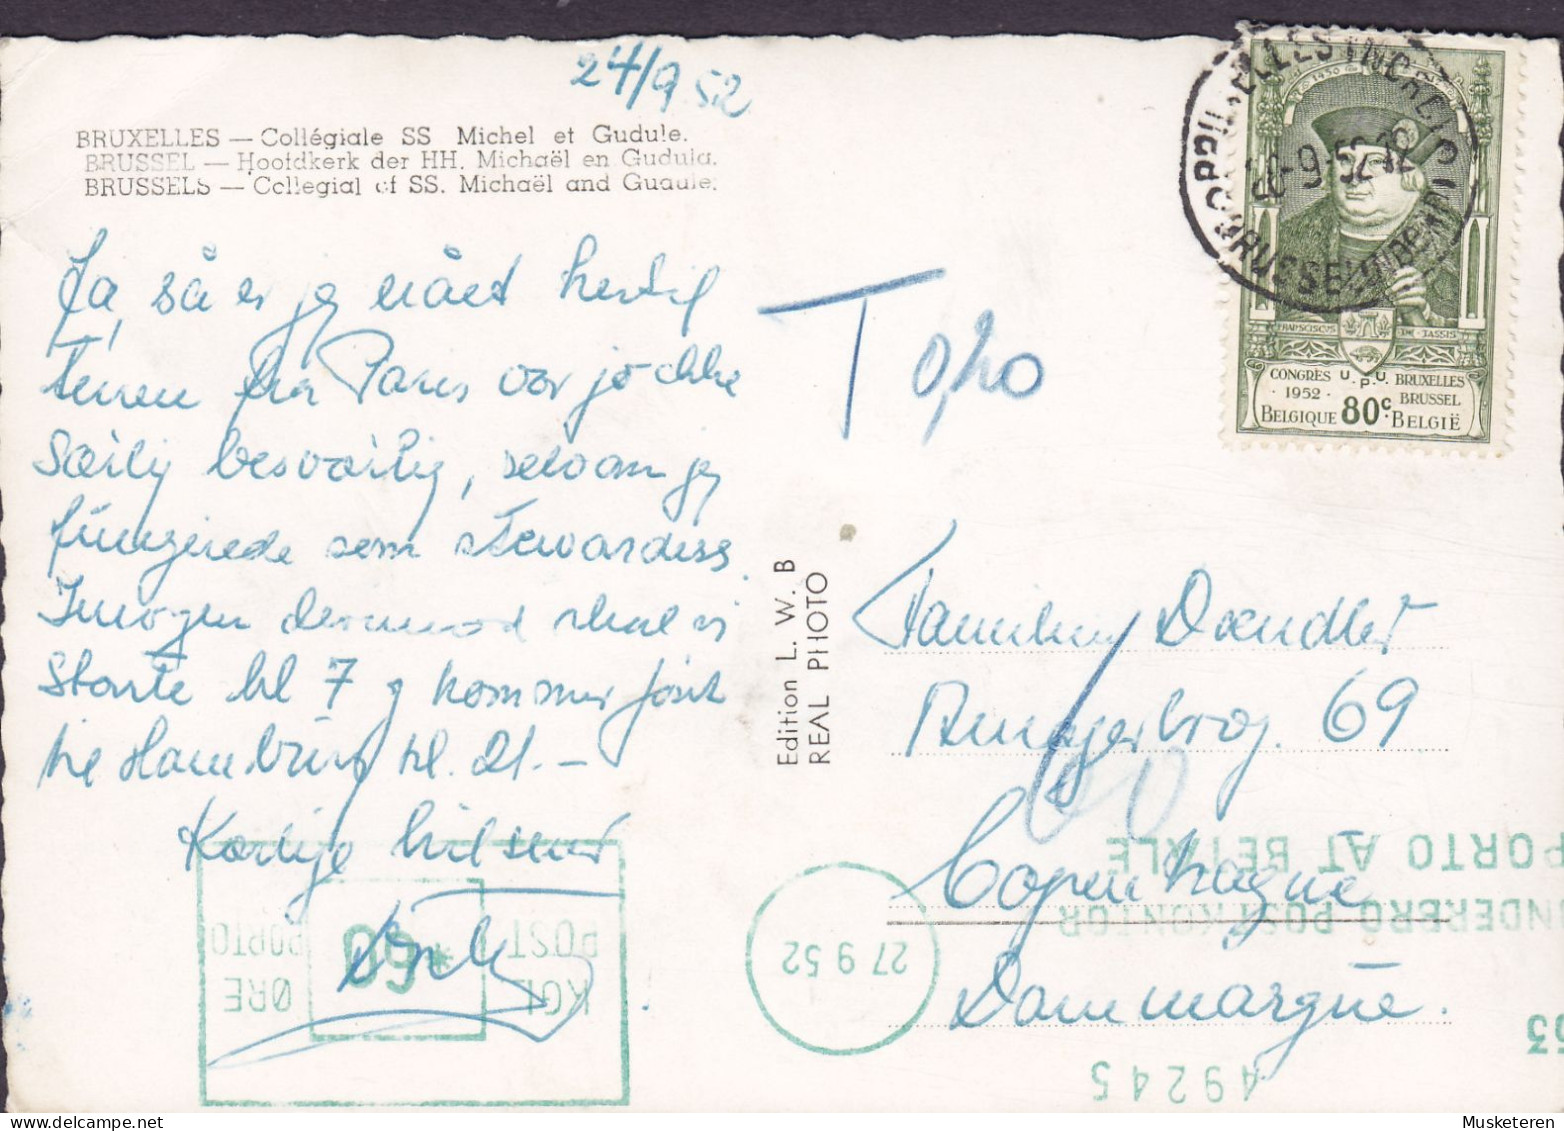 24/9 52
BRUXELLES — Collégiale SS Michel et Gudule.
BRUSSEL — Hoofdkerk der HH. Michaël en Gudula.
BRUSSELS — Collegial of SS. Michaël and Gudule.
Ja, så er jeg nået hertil
Turen fra Paris var jo ikke
særlig besværlig, selvom jeg
fungerede som stewardess.
Imorgen skal vi
starte kl 7 og kommer først
til Hamburg kl. 21. –
Kærlige hilsener
KGL
POST
*60
ØRE
PORTO
Edition L. W. B
REAL PHOTO
T 0,20
BRUXELLES
BRUSSEL
-9-52
FRANCISCUS DE TASSIS
CONGRÈS U.P.U. BRUXELLES
1952 BRUSSEL
BELGIQUE 80c. BELGIË
69
Copenhague
Danmarque.
60
PORTO AT BETALE
NDERBRO POSTKONTOR
27 9 52
49245
Musketeren